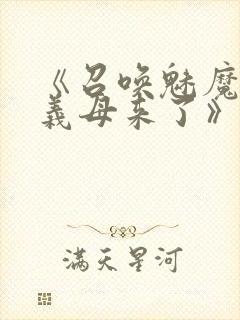 《召唤魅魔
義母来了》
满天星河